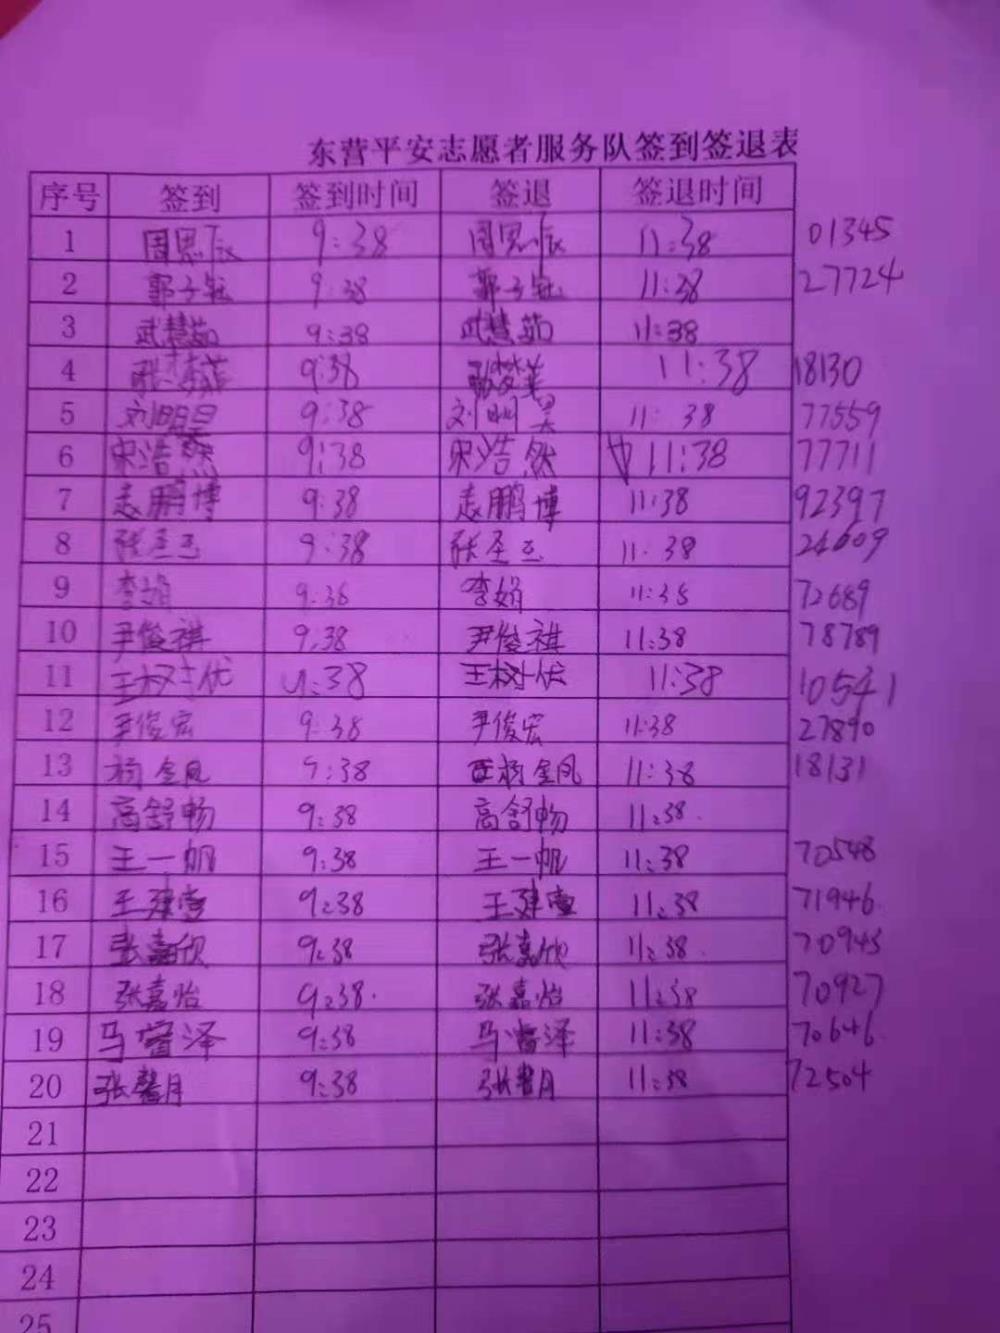 东营平安志愿者服务队签到签退表
序号 签到 签到时间 签退 签退时间
1 周恩辰 9:38 周恩辰 11:38 01345
2 郭子钰 9:38 郭子钰 11:38 27724
3 武慧茹 9:38 武慧茹 11:38
4 张梦美 9:38 张梦美 11:38 18130
5 刘明昊 9:38 刘明昊 11:38 77559
6 宋浩然 9:38 宋浩然 11:38 77711
7 志鹏博 9:38 志鹏博 11:38 92397
8 张圣玉 9:38 张圣玉 11:38 24609
9 李娟 9:38 李娟 11:38 72689
10 尹俊祺 9:38 尹俊祺 11:38 78789
11 王树优 9:38 王树优 11:38 10541
12 尹俊宏 9:38 尹俊宏 11:38 27890
13 杨金凤 9:38 杨金凤 11:38 18131
14 高舒畅 9:38 高舒畅 11:38
15 王一帆 9:38 王一帆 11:38 70548
16 王建 9:38 王建 11:38 71946
17 张嘉欣 9:38 张嘉欣 11:38 70945
18 张嘉怡 9:38 张嘉怡 11:38 70927
19 马睿泽 9:38 马睿泽 11:38 70646
20 张馨月 9:38 张馨月 11:38 72504
21
22
23
24
25